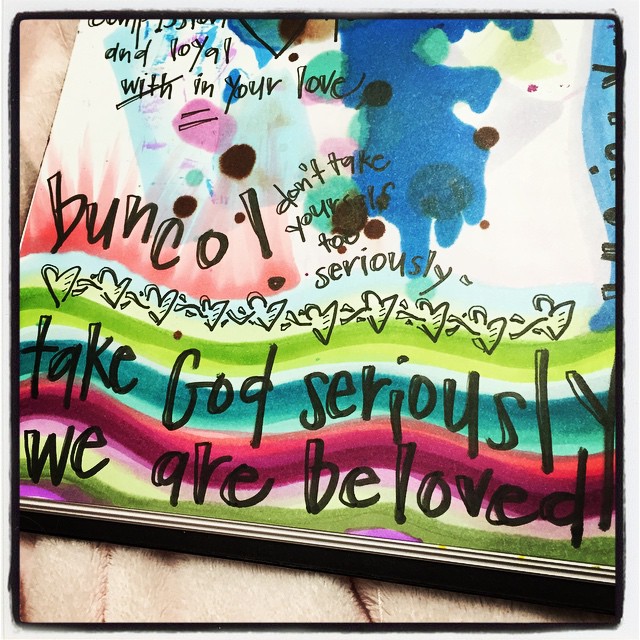 and loyal
with in your love
bunco!
don't take
yourself
too
seriously.
take God seriously
we are beloved!